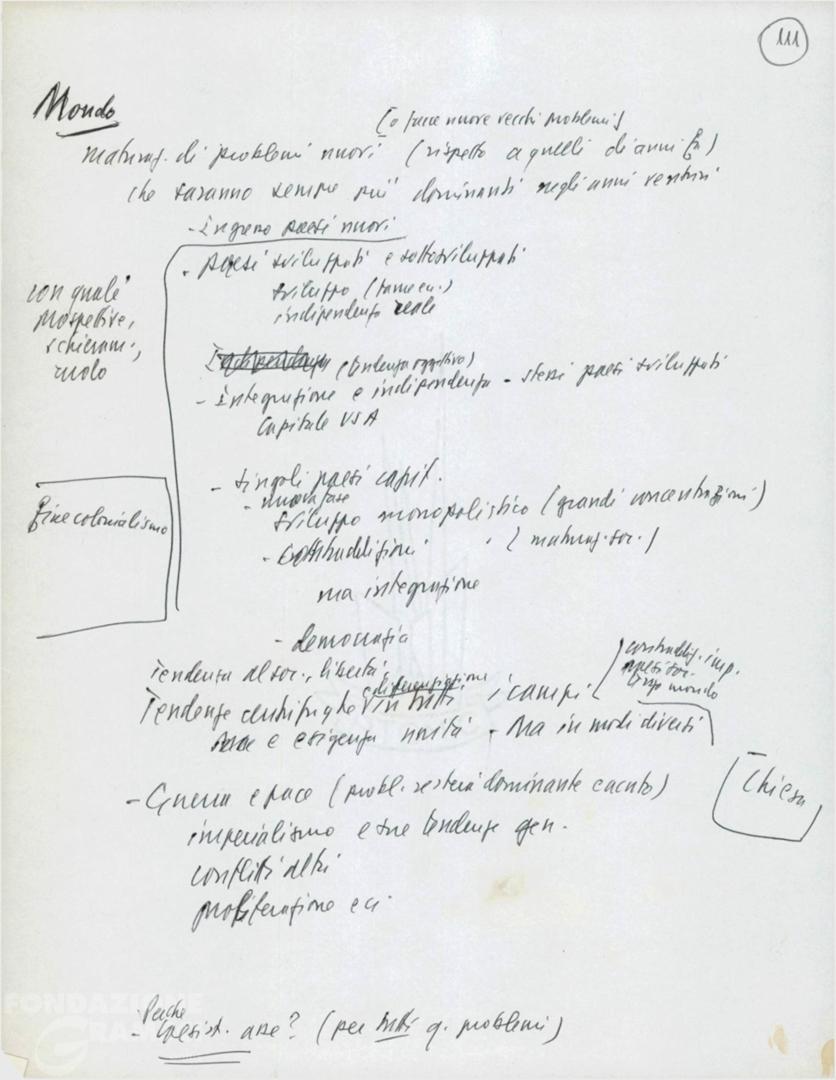 111
Mondo
[o facce nuove vecchi problemi]
maturaz. di problemi nuovi (rispetto a quelli di anni fa)
che saranno sempre più dominanti negli anni venturi
- Ingresso paesi nuovi
- paesi sviluppati e sottosviluppati
sviluppo (fame ecc.)
indipendenza reale
con quali
prospettive,
schieram.,
ruolo
Indipendenza (tendenza oggettiva)
- Integrazione e indipendenza - stessi paesi sviluppati
Capitale USA
- singoli paesi capit.
- nuova fase
sviluppo monopolistico (grandi concentrazioni)
- contraddizioni (maturaz. soc.)
ma integrazione
Fine colonialismo
- democrazia
Tendenza al soc., libertà
Tendenze centrifughe e differenziazione in tutti i campi
contraddiz. imp.
paesi soc.
terzo mondo
e esigenza unità - Ma in modi diversi
Chiesa
- Guerra e pace (probl. resterà dominante e acuto)
imperialismo e sue tendenze gen.
conflitti altri
proliferazione ecc.
Perché
- Coesist. asse? (per tutti q. problemi)
FONDAZIONE
GRAMSCI